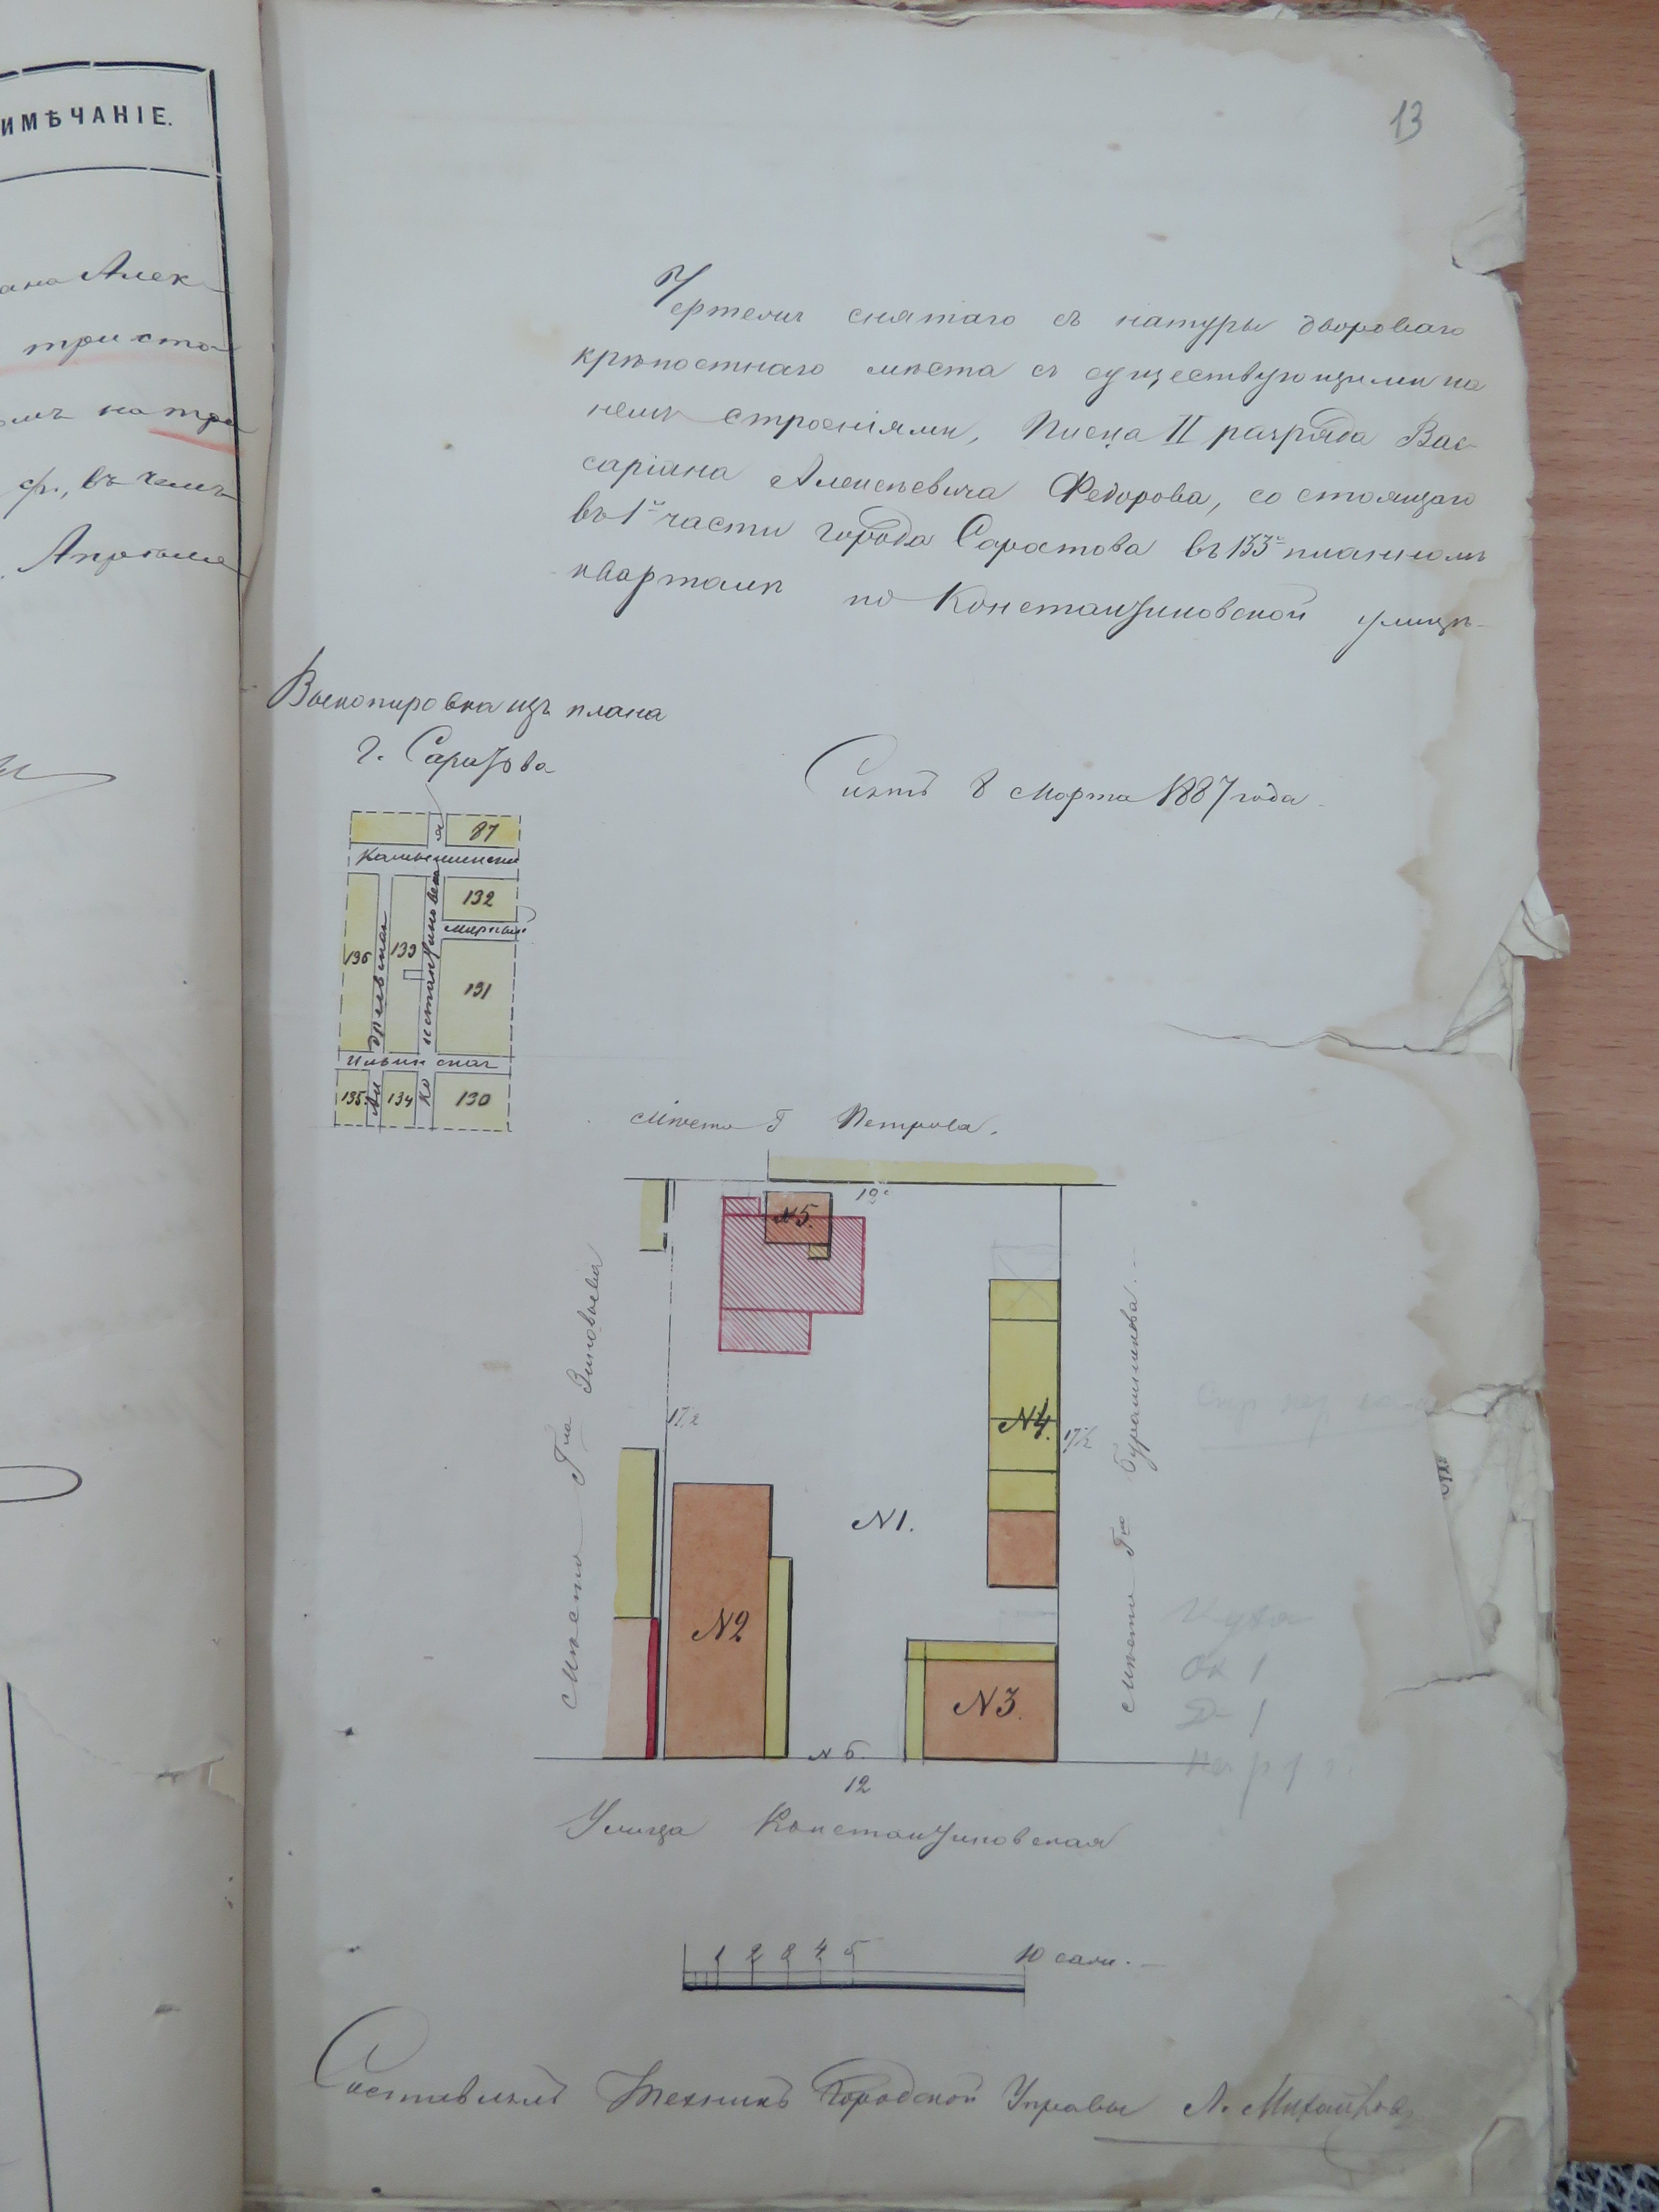 ИМѢЧАНІЕ.
ана Алек-
три ста
омъ на три
ф., въ чемъ
13
Чертежъ снятаго съ натуры двороваго
крѣпостнаго мѣста съ существующими на
немъ строеніями, Писца II разряда Вас-
саріана Алексѣевича Федорова, состоящаго
въ 1й части города Саратова въ 133м плановомъ
кварталѣ по Константиновской улицѣ
Выкопировка изъ плана
г. Саратова
Снятъ 8 Марта 1887 года
я 87
Камышинская
132
Мирный
136 133
131
Ильинская
135 134 130
Константиновская
Мѣсто Г Петрова.
12
N 5.
Мѣсто Гна Зиновьева
17½
N 4.
17½
Мѣсто Гна
N 1.
N 2
N 3.
N 6.
12
Улица Константиновская
Кухня
Ок 1
Д- 1
1 2 3 4 5 10 саж.
Составлялъ Техникъ Городской Управы А. Михайлов